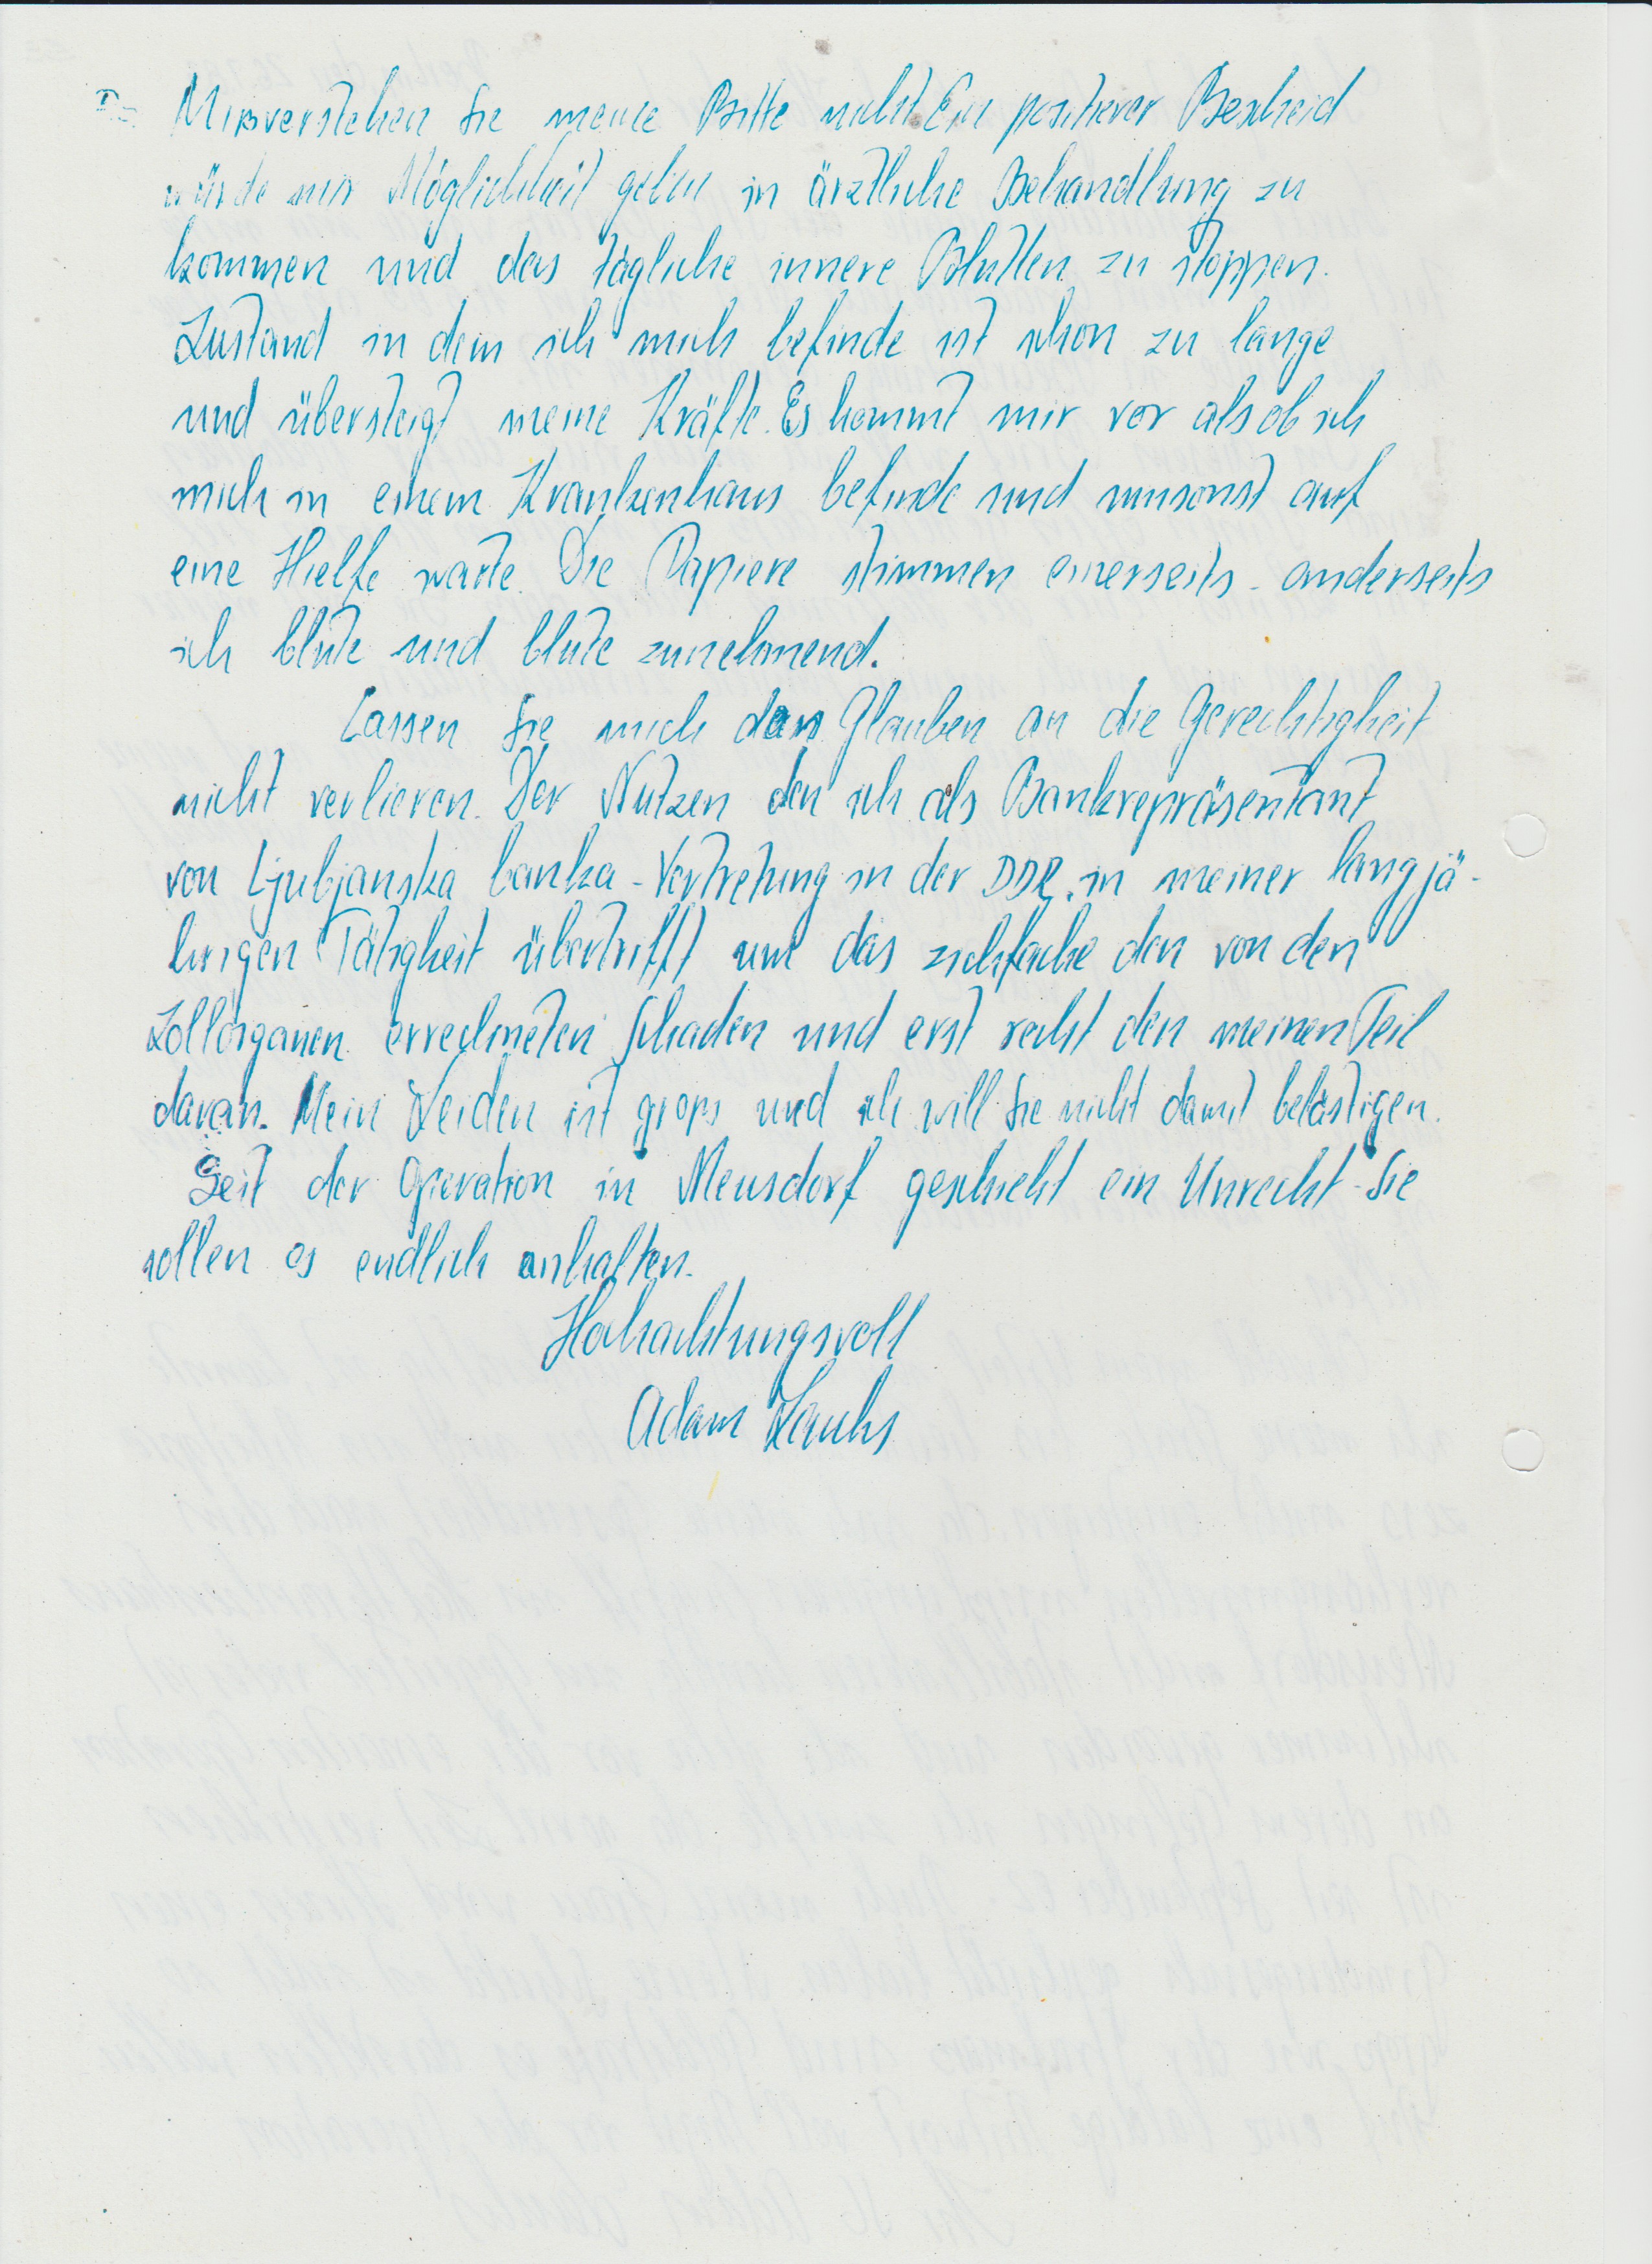 Mißverstehen Sie meine Bitte nicht. Ein positiver Bescheid
würde mir Möglichkeit geben in ärztliche Behandlung zu
kommen und das tägliche innere Blutten zu stoppen.
Zustand in dem ich mich befinde ist schon zu lange
und übersteigt meine Kräfte. Es kommt mir vor als ob ich
mich in einem Krankenhaus befinde und umsonst auf
eine Hielfe warte. Die Papiere stimmen einerseits - anderseits
ich blute und blute zunehmend.
Lassen Sie mich den Glauben an die Gerechtigkeit
nicht verlieren. Der Nutzen den ich als Bankrepräsentant
von Ljubjanska banka - Vertretung in der DDR, in meiner langjä-
hrigen Tätigkeit übertrifft um das zichfache den von den
Zollorganen errechneten Schaden und erst recht den meinen Teil
daran. Mein Leiden ist gross und ich will Sie nicht damit belästigen.
Seit der Operation in Meusdorf geschieht ein Unrecht - Sie
sollen es endlich anhalten.
Hochachtungsvoll
Adam Lauks